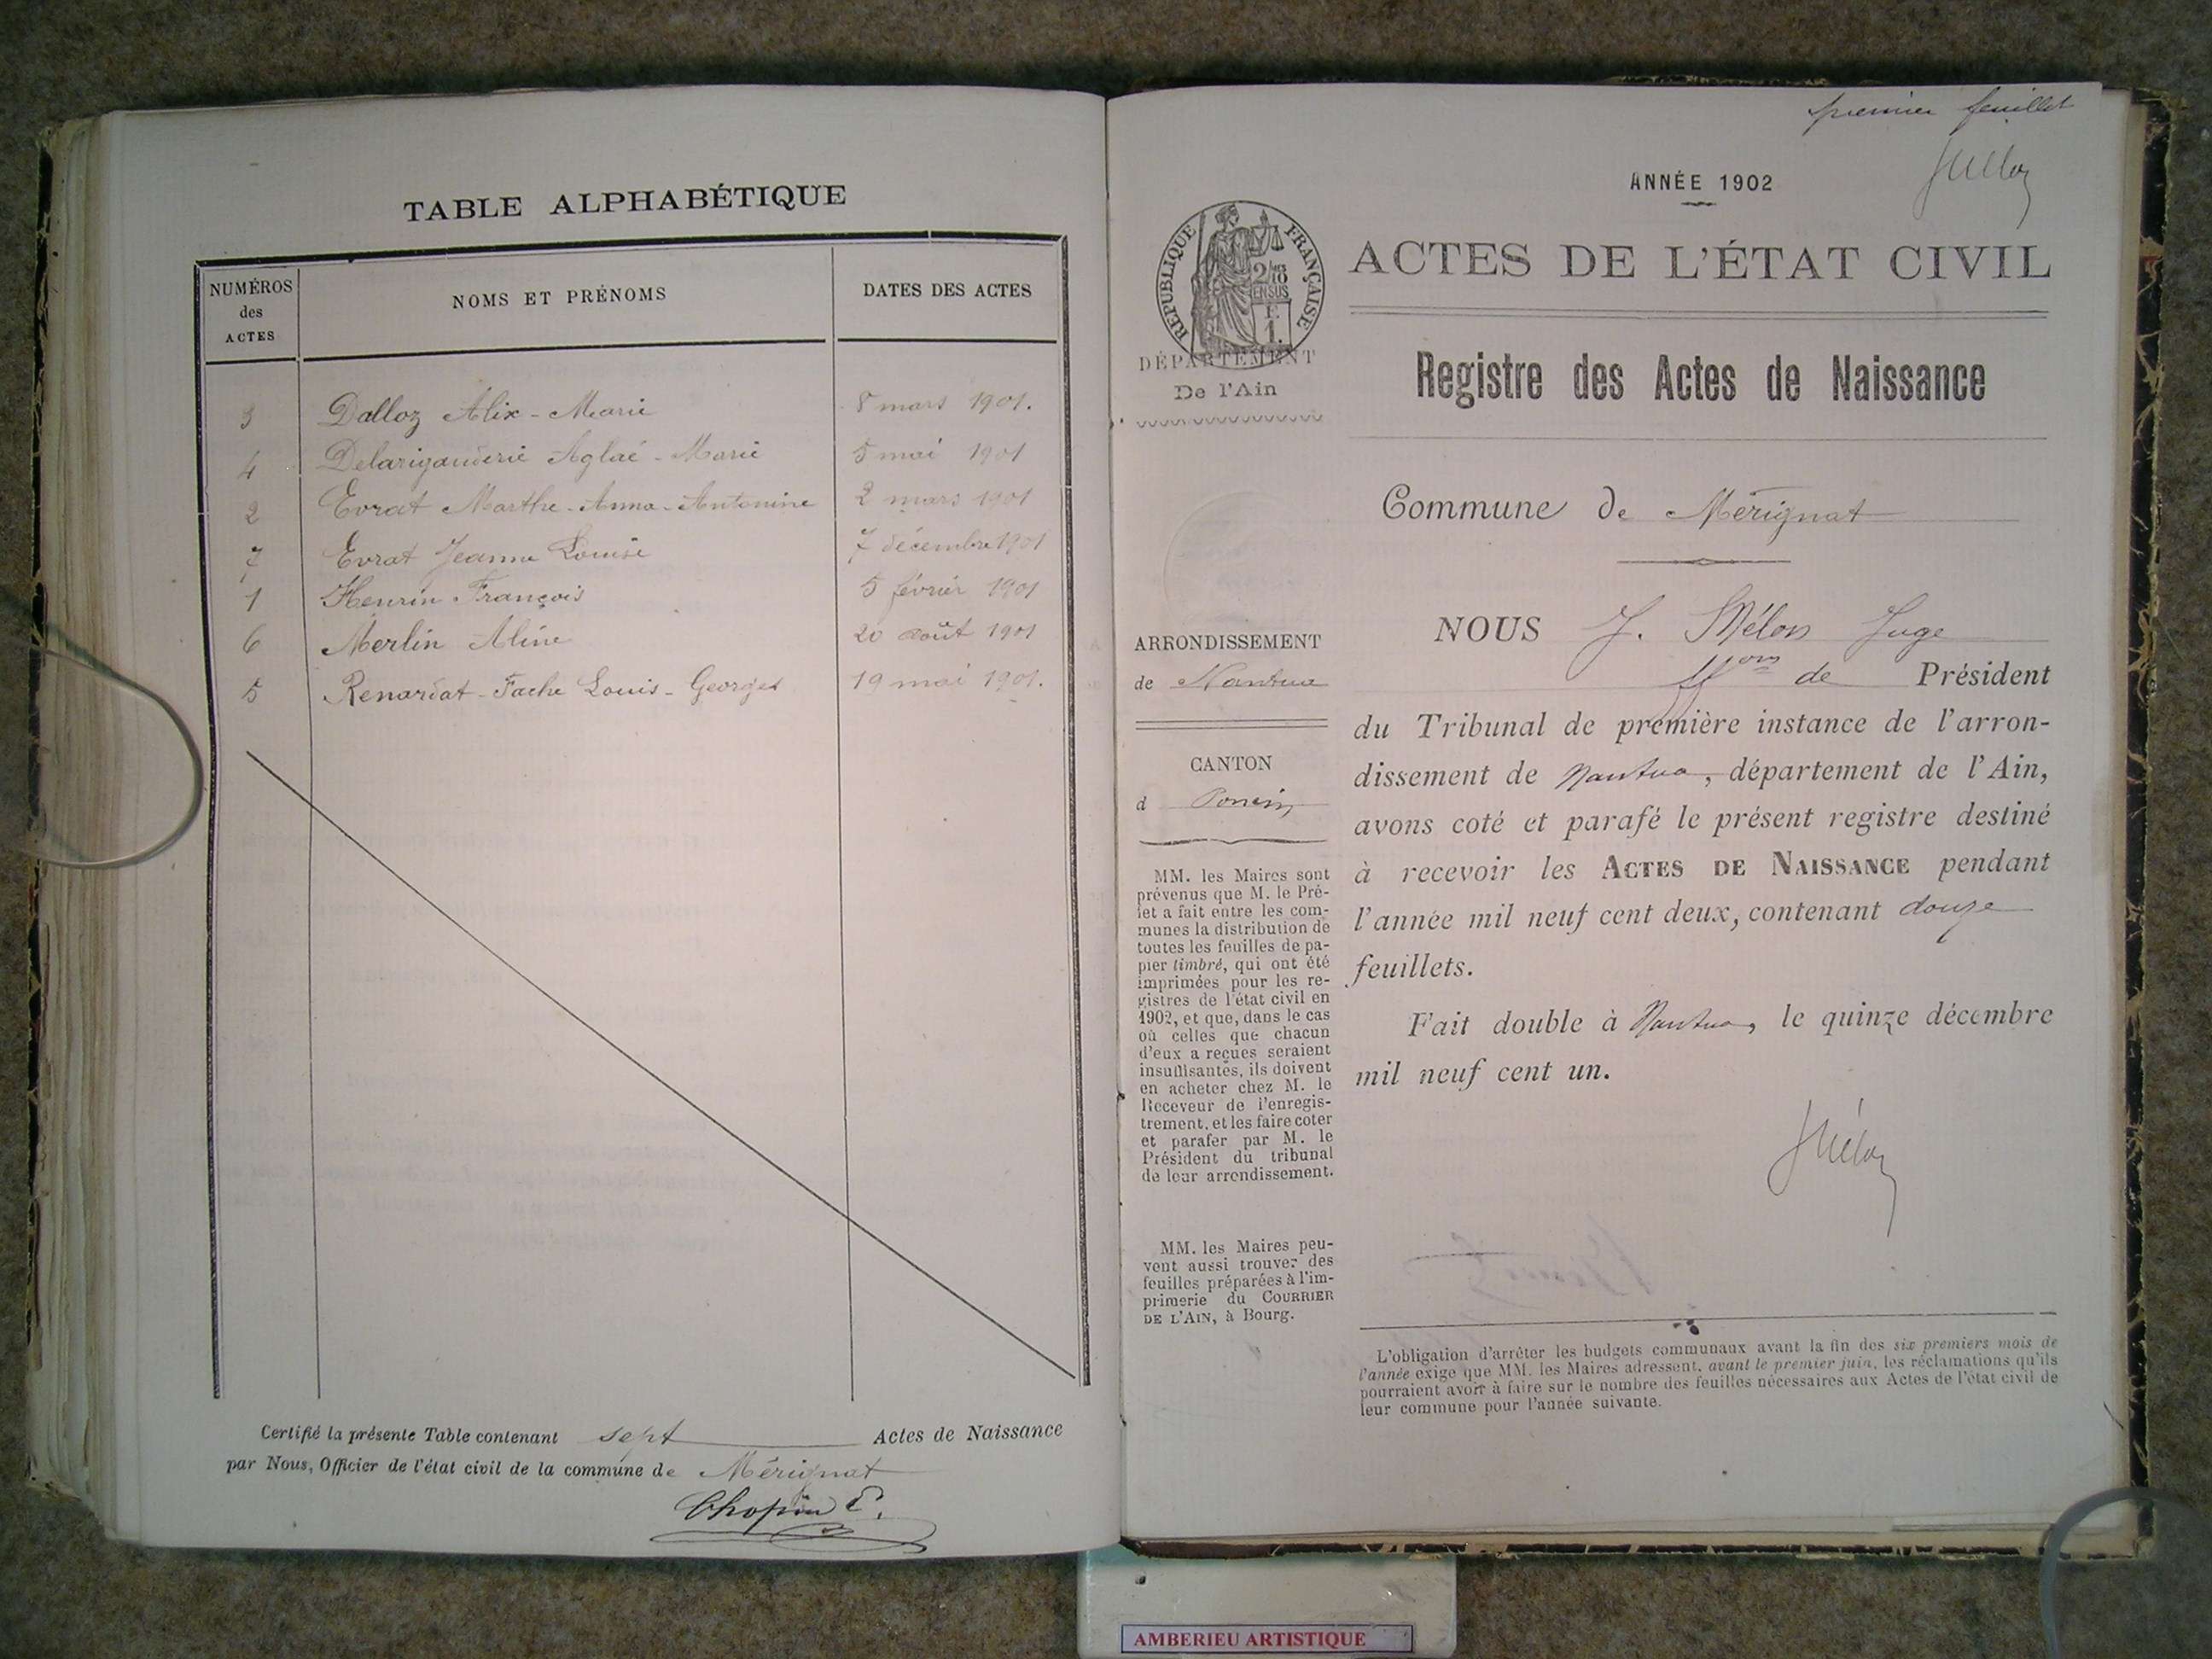 TABLE ALPHABÉTIQUE
NUMÉROS des ACTES
NOMS ET PRÉNOMS
DATES DES ACTES
3 Dalloz Alix - Marie 8 mars 1901.
4 Delarigauderie Aglaé - Marie 5 mai 1901
2 Evrat Marthe - Anna - Antonine 2 mars 1901
7 Evrat Jeanne Louise 7 décembre 1901
1 Henrin François 5 février 1901
6 Merlin Aline 20 août 1901
5 Renardat - Fache Louis - Georges 19 mai 1901.
Certifié la présente Table contenant sept Actes de Naissance
par Nous, Officier de l'état civil de la commune de Mérignat
Chopin E.
premier feuillet
ANNÉE 1902
RÉPUBLIQUE FRANÇAISE
2/10
EN SUS
F.
1.
DÉPARTEMENT
De l'Ain
ACTES DE L'ÉTAT CIVIL
Registre des Actes de Naissance
Commune de Mérignat
ARRONDISSEMENT
de Nantua
CANTON
d Poncin
MM. les Maires sont
prévenus que M. le Pré-
fet a fait entre les com-
munes la distribution de
toutes les feuilles de pa-
pier timbré, qui ont été
imprimées pour les re-
gistres de l'état civil en
1902, et que, dans le cas
où celles que chacun
d'eux a reçues seraient
insuffisantes, ils doivent
en acheter chez M. le
Receveur de l'enregis-
trement, et les faire coter
et parafer par M. le
Président du tribunal
de leur arrondissement.
MM. les Maires peu-
vent aussi trouver des
feuilles préparées à l'im-
primerie du COURRIER
DE L'AIN, à Bourg.
NOUS J. Mélon Juge
ffons de Président
du Tribunal de première instance de l'arron-
dissement de Nantua, département de l'Ain,
avons coté et parafé le présent registre destiné
à recevoir les ACTES DE NAISSANCE pendant
l'année mil neuf cent deux, contenant douze
feuillets.
Fait double à Nantua, le quinze décembre
mil neuf cent un.
L'obligation d'arrêter les budgets communaux avant la fin des six premiers mois de
l'année exige que MM. les Maires adressent, avant le premier juin, les réclamations qu'ils
pourraient avoir à faire sur le nombre des feuilles nécessaires aux Actes de l'état civil de
leur commune pour l'année suivante.
AMBERIEU ARTISTIQUE